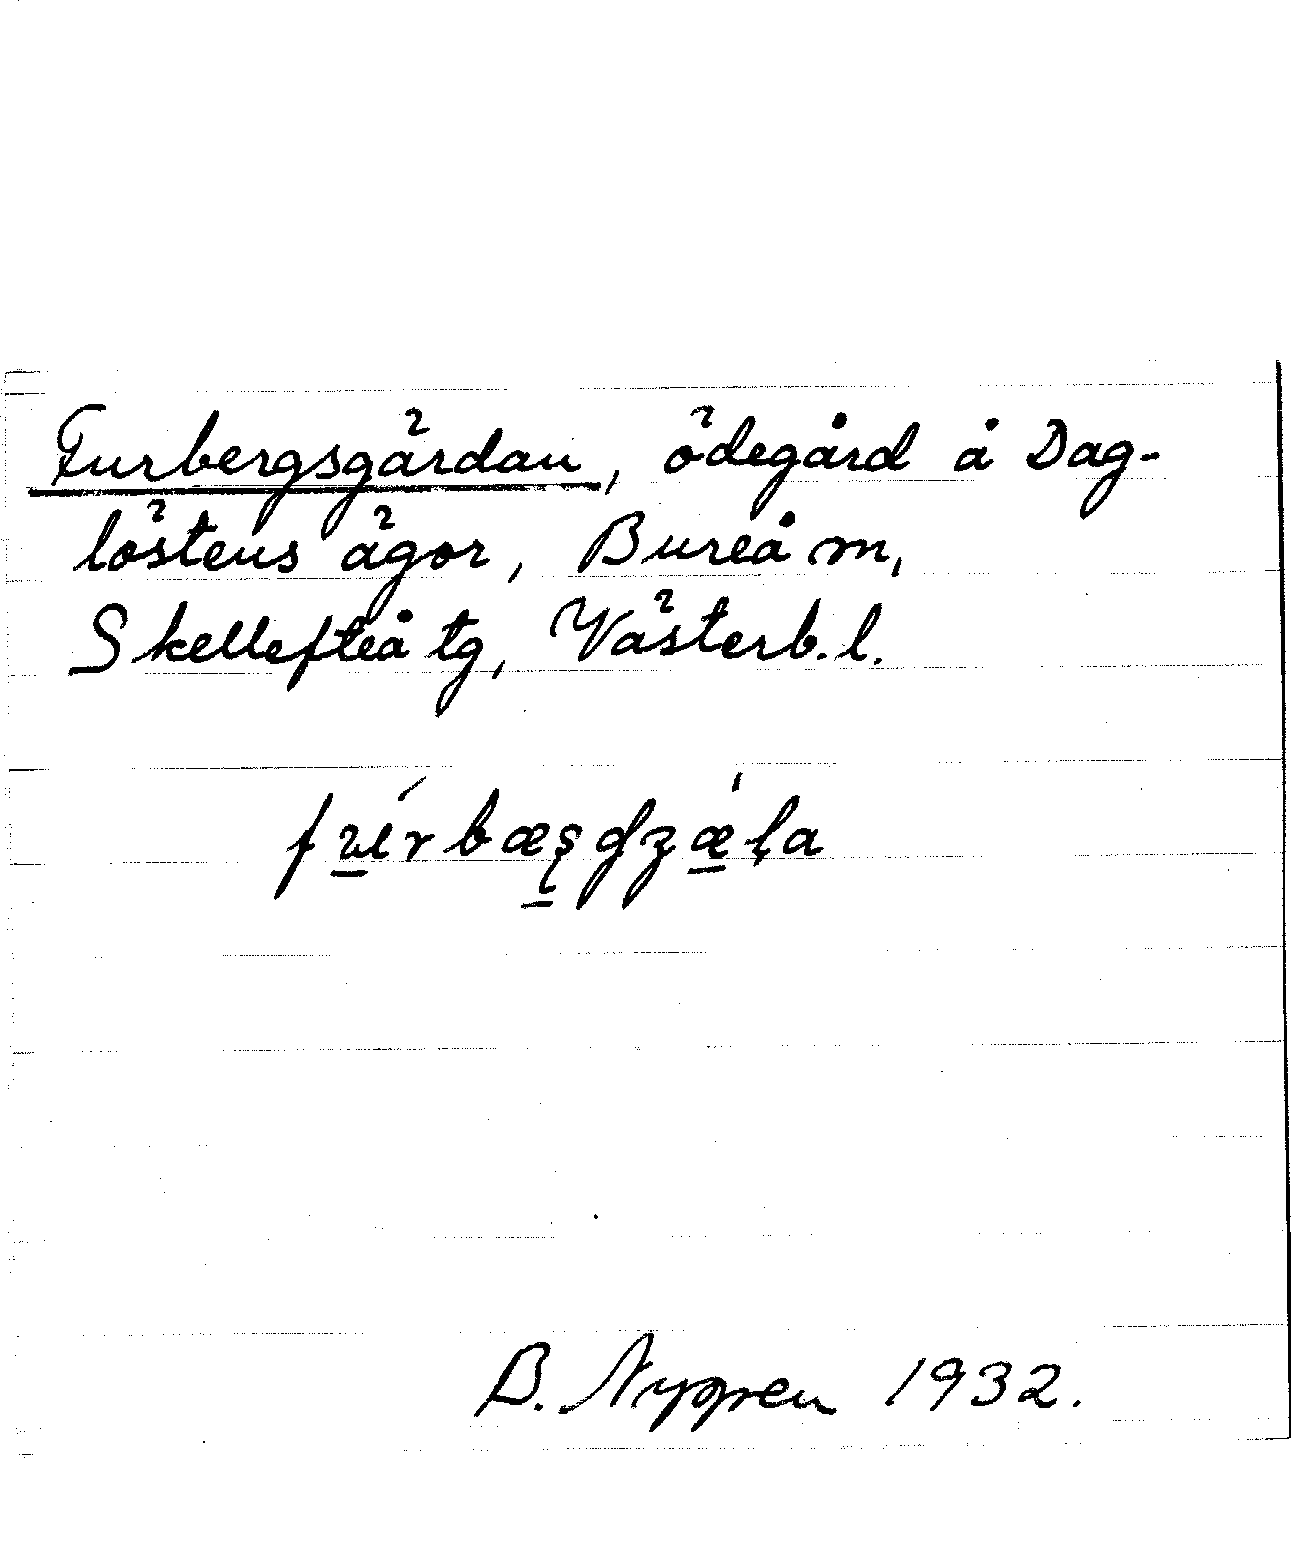 Furbergsgärdan, ödegård å Dag-
löstens ägor, Bureå m,
Skellefteå tg, Västerb. l.
B. Nygren 1932.